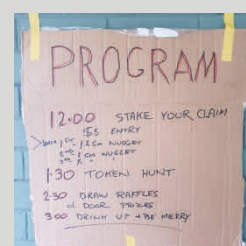 PROGRAM
12.00 STAKE YOUR CLAIM
$5 ENTRY
1ST 1 X GM NUGGET
2ND 1 GM NUGGET
3RD
1.30 TOKEN HUNT
2.30 DRAW RAFFLES
DOOR PRIZES
3.00 DRINK UP + BE MERRY